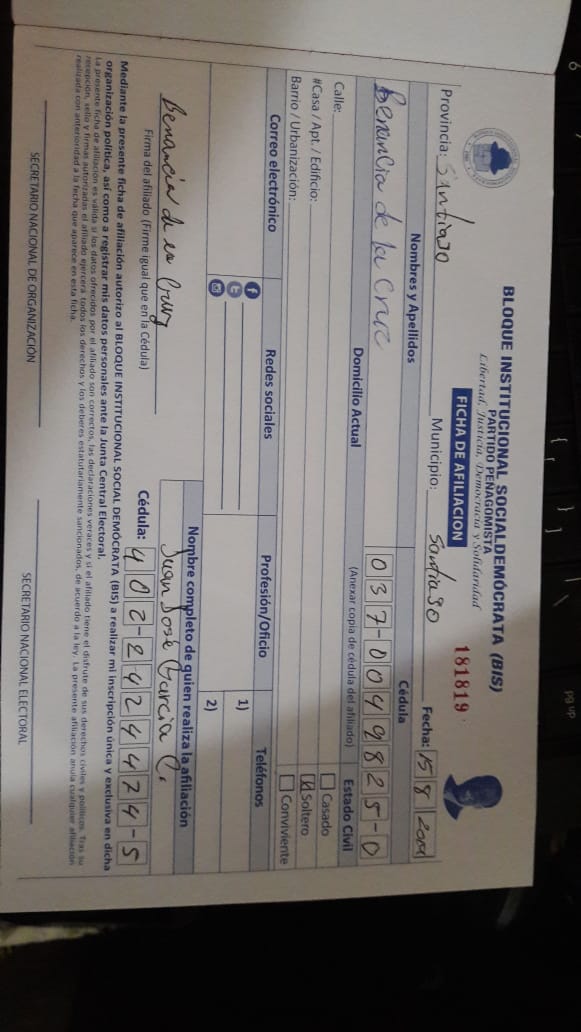 BLOQUE INSTITUCIONAL SOCIALDEMÓCRATA (BIS)
PARTIDO PEÑAGOMISTA
Libertad, Justicia, Democracia y Solidaridad
FICHA DE AFILIACIÓN
181819
Provincia: Santiago Municipio: Santiago Fecha: 15 8 2019
Nombres y Apellidos Cédula
Benancia de la Cruz 037-0049825-0
Domicilio Actual (Anexar copia de cédula del afiliado) Estado Civil
Calle: Casado
#Casa / Apt. / Edificio: Soltero
Barrio / Urbanización: Conviviente
Correo electrónico Redes sociales Profesión/Oficio Teléfonos
1)
2)
Nombre completo de quien realiza la afiliación
Benancia de la Cruz Juan José García C.
Firma del afiliado (Firme igual que en la Cédula) Cédula: 402-2424474-5
Mediante la presente ficha de afiliación autorizo al BLOQUE INSTITUCIONAL SOCIAL DEMÓCRATA (BIS) a realizar mi inscripción única y exclusiva en dicha
organización política, así como a registrar mis datos personales ante la Junta Central Electoral.
La presente ficha de afiliación es válida si los datos ofrecidos por el afiliado son correctos, las declaraciones veraces y si el afiliado tiene el disfrute de sus derechos civiles y políticos. Tras su
recepción, sello y firmas autorizadas el afiliado ejercerá todos los derechos y los deberes estatutariamente sancionados, de acuerdo a la ley. La presente afiliación anula cualquier afiliación
realizada con anterioridad a la fecha que aparece en esta ficha.
SECRETARIO NACIONAL DE ORGANIZACIÓN SECRETARIO NACIONAL ELECTORAL
6
{ [
} ]
\
pg up